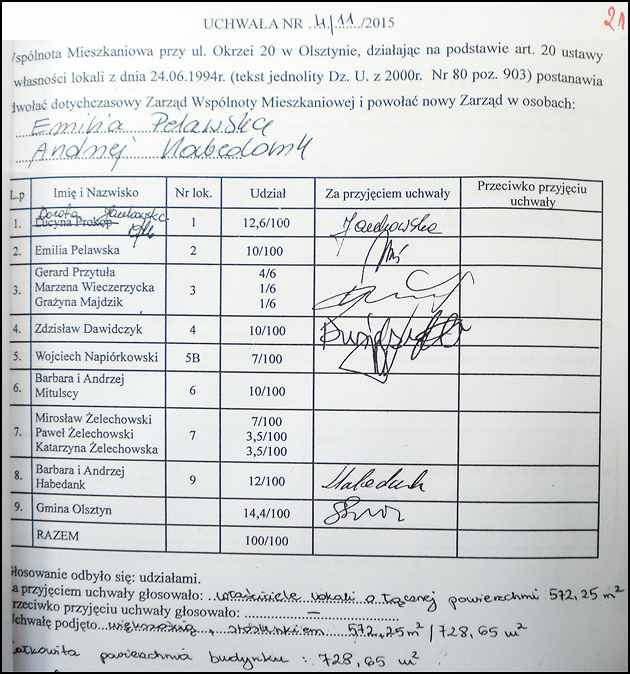 UCHWAŁA NR 4/11/2015
21
Wspólnota Mieszkaniowa przy ul. Okrzei 20 w Olsztynie, działając na podstawie art. 20 ustawy
własności lokali z dnia 24.06.1994r. (tekst jednolity Dz. U. z 2000r. Nr 80 poz. 903) postanawia
dwołać dotychczasowy Zarząd Wspólnoty Mieszkaniowej i powołać nowy Zarząd w osobach:
Emilia Pelawska
Andrzej Habedank
L.p Imię i Nazwisko Nr lok. Udział Za przyjęciem uchwały Przeciwko przyjęciu uchwały
Dorota
1. Lucyna Prokop 1 12,6/100
2. Emilia Pelawska 2 10/100
3. Gerard Przytuła 3 4/6
Marzena Wieczerzycka 1/6
Grażyna Majdzik 1/6
4. Zdzisław Dawidczyk 4 10/100
5. Wojciech Napiórkowski 5B 7/100
6. Barbara i Andrzej Mitulscy 6 10/100
7. Mirosław Żelechowski 7 7/100
Paweł Żelechowski 3,5/100
Katarzyna Żelechowska 3,5/100
8. Barbara i Andrzej Habedank 9 12/100 Habedank
9. Gmina Olsztyn 14,4/100
RAZEM 100/100
głosowanie odbyło się: udziałami.
a przyjęciem uchwały głosowało: właściciele lokali o łącznej powierzchni 572,25 m²
rzeciwko przyjęciu uchwały głosowało: –
Uchwałę podjęto większością, stosunkiem 572,25m² / 728,65 m²
ałkowita powierzchnia budynku : 728,65 m²